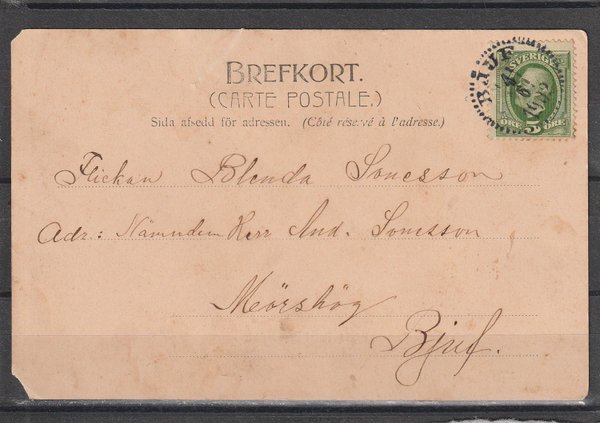 BREFKORT.
(CARTE POSTALE.)
Sida afsedd för adressen. (Côté réservé à l'adresse.)
SVERIGE
5
ÖRE
BJUF
Flickan Blenda Sonesson
Adr: Nämndem Herr And. Sonesson
Mörshög
Bjuf.